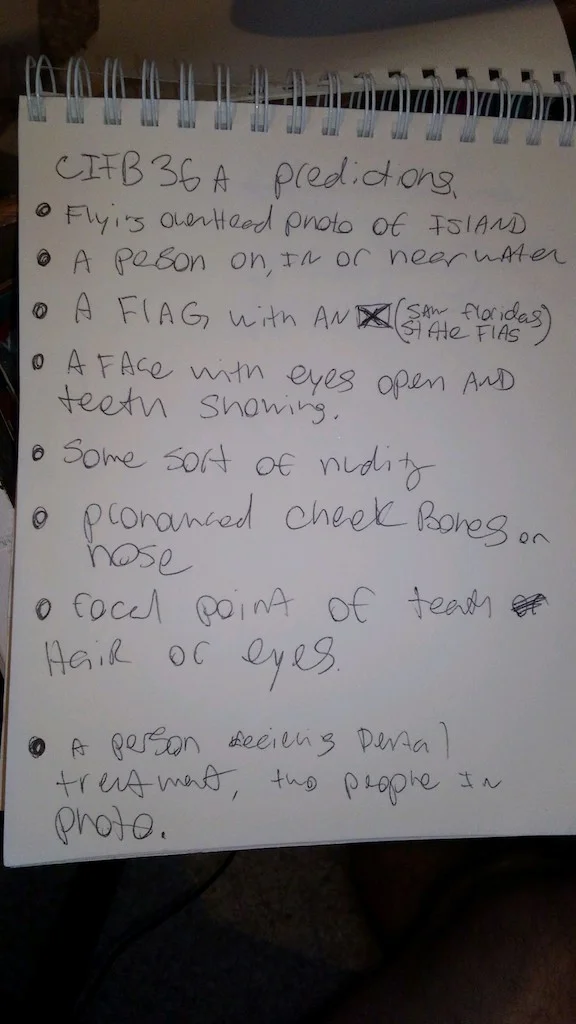 CIFB36A predictions.
Flying overhead photo of ISLAND
A person on, IN or near water
A FlAG with AN (SAW floridas
state FlAG)
A FAce with eyes open AND
teeth showing.
Some sort of nudity
pronounced cheek Bones on
nose
focel point of teeth
HAiR or eyes.
A person recieving Dental
treatment, two people IN
photo.